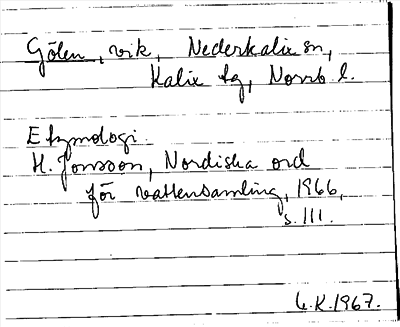 Gölen, vik, Nederkalix sn,
Kalix tg, Norrb. l.
Etymologi.
H. Jonsson, Nordiska ord
för vattensamling, 1966,
s. 111.
L.K. 1967.